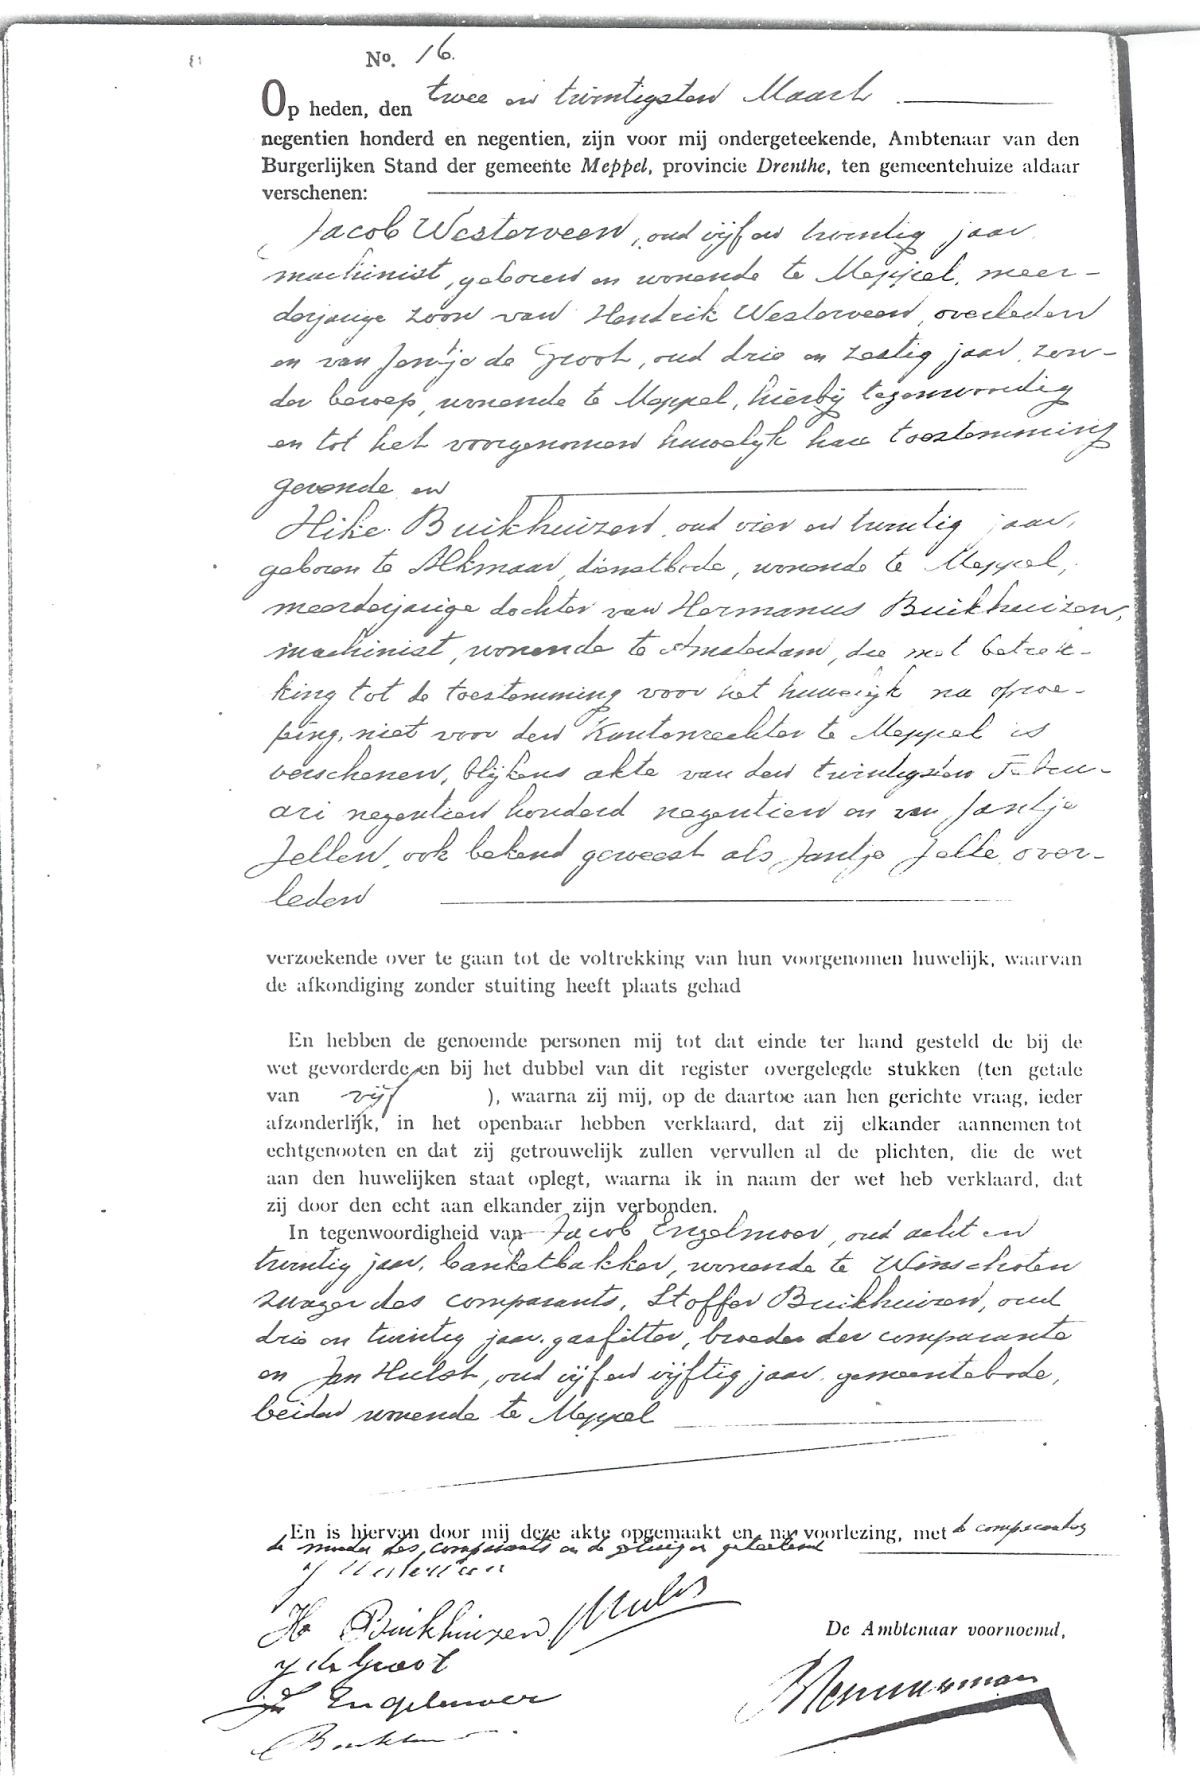 No. 16.
Op heden, den twee en twintigsten Maart
negentien honderd en negentien, zijn voor mij ondergeteekende, Ambtenaar van den
Burgerlijken Stand der gemeente Meppel, provincie Drenthe, ten gemeentehuize aldaar
verschenen:
Jacob Westerveen, oud vijf en twintig jaar,
machinist, geboren en wonende te Meppel, meer-
derjarige zoon van Hendrik Westerveen, overleden
en van Jantje de Groot, oud drie en zestig jaar, zon-
der beroep, wonende te Meppel, hierbij tegenwoordig
en tot het voorgenomen huwelijk hare toestemming
gevende en
Hike Buikhuizen, oud vier en twintig jaar,
geboren te Alkmaar, dienstbode, wonende te Meppel,
meerderjarige dochter van Hermanus Buikhuizen,
machinist, wonende te Amsterdam, die met betrek-
king tot de toestemming voor het huwelijk na oproe-
ping, niet voor den Kantonrechter te Meppel is
verschenen, blijkens akte van den twintigsten Febru-
ari negentien honderd negentien en van Jantje
Jellen, ook bekend geweest als Jantje Jelle, over-
leden
verzoekende over te gaan tot de voltrekking van hun voorgenomen huwelijk, waarvan
de afkondiging zonder stuiting heeft plaats gehad
En hebben de genoemde personen mij tot dat einde ter hand gesteld de bij de
wet gevorderde en bij het dubbel van dit register overgelegde stukken (ten getale
van vijf ), waarna zij mij, op de daartoe aan hen gerichte vraag, ieder
afzonderlijk, in het openbaar hebben verklaard, dat zij elkander aannemen tot
echtgenooten en dat zij getrouwelijk zullen vervullen al de plichten, die de wet
aan den huwelijken staat oplegt, waarna ik in naam der wet heb verklaard, dat
zij door den echt aan elkander zijn verbonden.
In tegenwoordigheid van Jacob Engelmoer, oud acht en
twintig jaar, banketbakker, wonende te Winschoten
zwager des comparants, Stoffer Buikhuizen, oud
drie en twintig jaar, gasfitter, broeder der comparante
en Jan Hulst, oud vijf en vijftig jaar, gemeentebode,
beiden wonende te Meppel
En is hiervan door mij deze akte opgemaakt en na voorlezing, met de comparanten
de moeder des comparants en de getuigen geteekend
J Westerveen
H Buikhuizen JHulst
J de Groot
J Engelmoer
De Ambtenaar voornoemd,